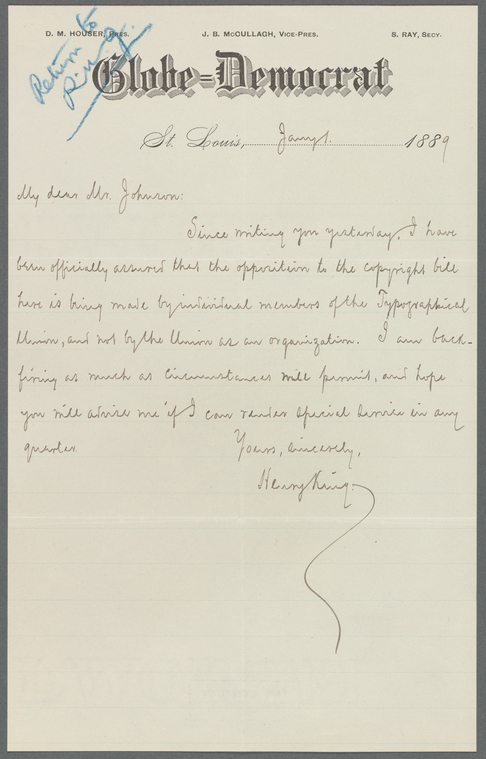 D. M. HOUSER, PRES. J. B. McCULLAGH, VICE-PRES. S. RAY, SECY.
Return to
R.U.J.
Globe=Democrat
St. Louis, Jany 1. 1889
My dear Mr. Johnson:
Since writing you yesterday, I have
been officially assured that the opposition to the copyright bill
here is being made by individual members of the Typographical
Union, and not by the Union as an organization. I am back-
firing as much as circumstances will permit, and hope
you will advise me if I can render special service in any
quarter.
Yours, sincerely,
Henry King.